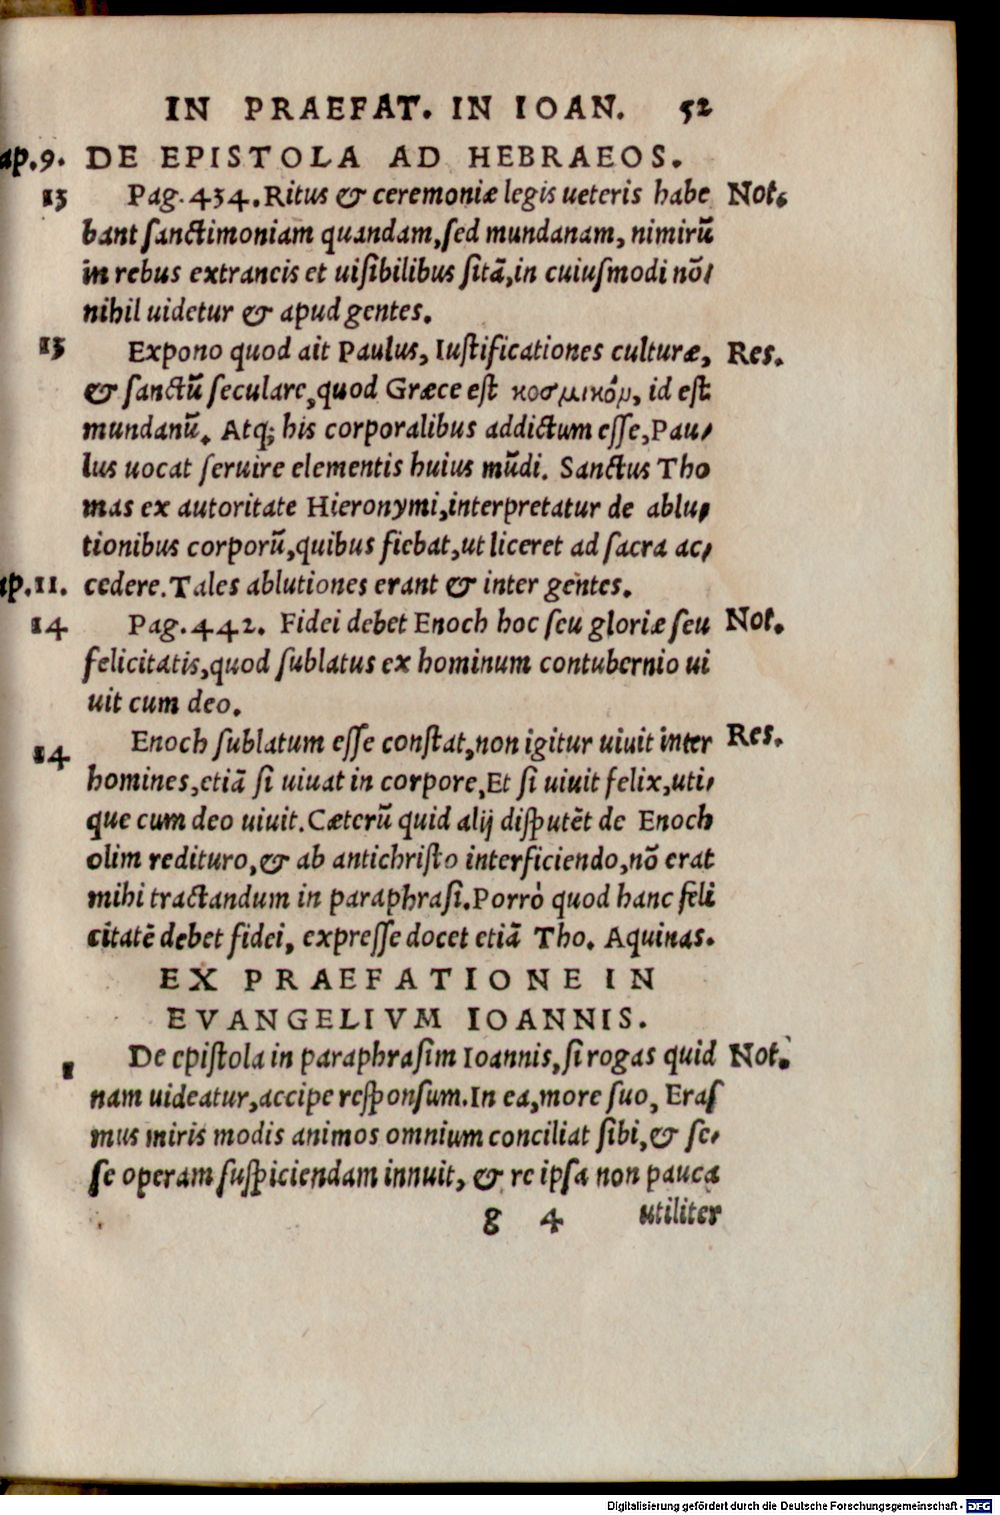 IN PRAEFAT. IN IOAN. 52
ap.9. DE EPISTOLA AD HEBRAEOS.
13 Pag. 434. Ritus & ceremoniæ legis ueteris habe Not.
bant sanctimoniam quandam, sed mundanam, nimirũ
in rebus extraneis et uisibilibus sitã, in cuiusmodi nõ/
nihil uidetur & apud gentes.
13 Expono quod ait Paulus, Iustificationes culturæ, Res.
& sanctũ seculare, quod Græce est κοσμικόν, id est
mundanũ. Atq; his corporalibus addictum esse, Pau/
lus uocat seruire elementis huius mũdi. Sanctus Tho
mas ex autoritate Hieronymi, interpretatur de ablu/
tionibus corporũ, quibus fiebat, ut liceret ad sacra ac/
ap.11. cedere. Tales ablutiones erant & inter gentes.
14 Pag. 442. Fidei debet Enoch hoc seu gloriæ seu Not.
felicitatis, quod sublatus ex hominum contubernio ui
uit cum deo.
14 Enoch sublatum esse constat, non igitur uiuit inter Res.
homines, etiã si uiuat in corpore, Et si uiuit felix, uti/
que cum deo uiuit. Cæterũ quid alij disputẽt de Enoch
olim redituro, & ab antichristo interficiendo, nõ erat
mihi tractandum in paraphrasi. Porrò quod hanc feli
citatẽ debet fidei, expresse docet etiã Tho. Aquinas.
EX PRAEFATIONE IN
EVANGELIVM IOANNIS.
1 De epistola in paraphrasim Ioannis, si rogas quid Not.
nam uideatur, accipe responsum. In ea, more suo, Eras
mus miris modis animos omnium conciliat sibi, & se/
se operam suspiciendam innuit, & re ipsa non pauca
g 4 utiliter
Digitalisierung gefördert durch die Deutsche Forschungsgemeinschaft - DFG